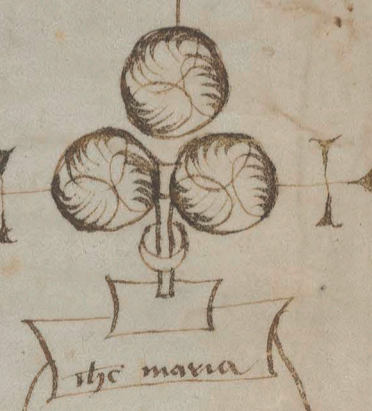 ihc maria